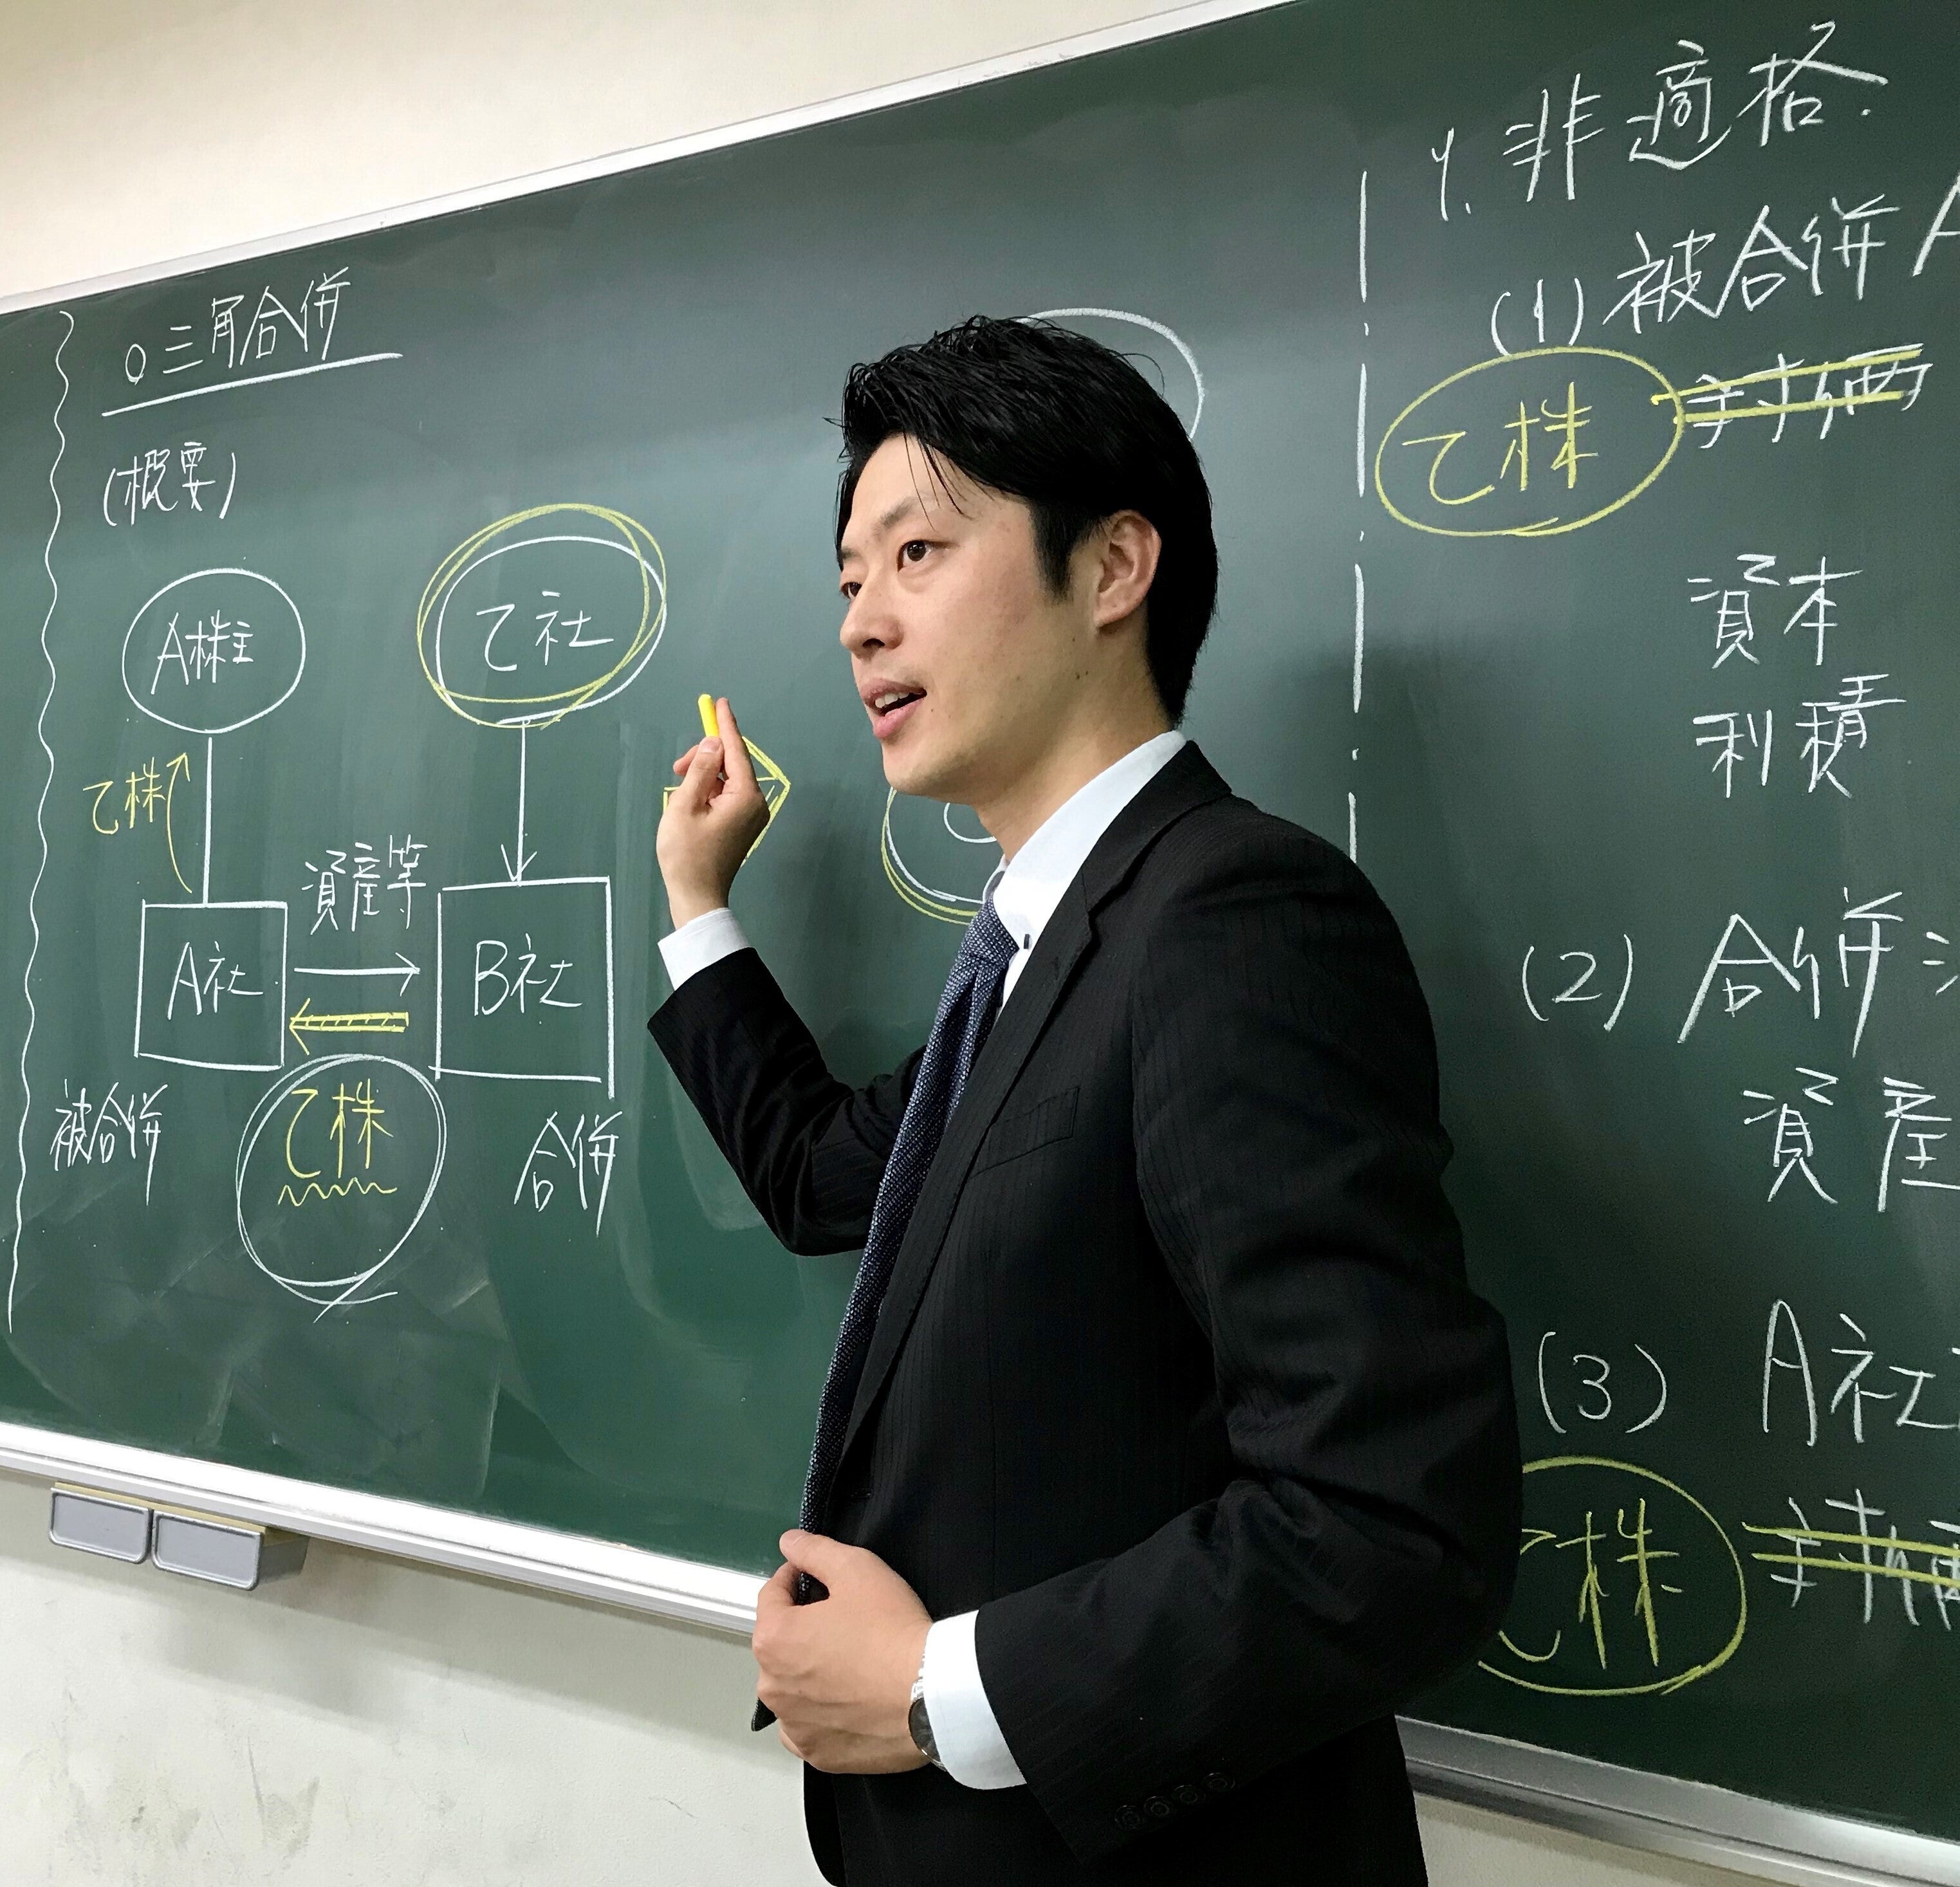 ○三角合併
(概要)
A株主
乙社
乙株
資産等
A社
B社
被合併
乙株
合併
1. 非適格
(1) 被合併
乙株
対価
資本
利積
(2) 合併
資産
(3) A社
乙株
対価